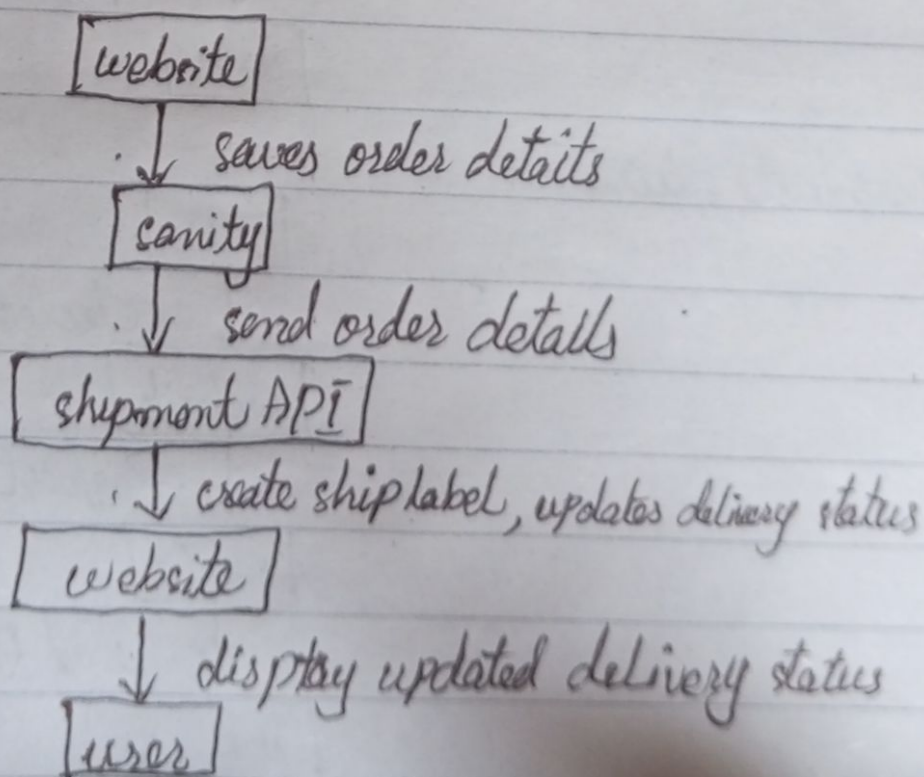 website
saves order details
sanity
send order details
shipment API
create ship label, updates delivery status
website
display updated delivery status
user